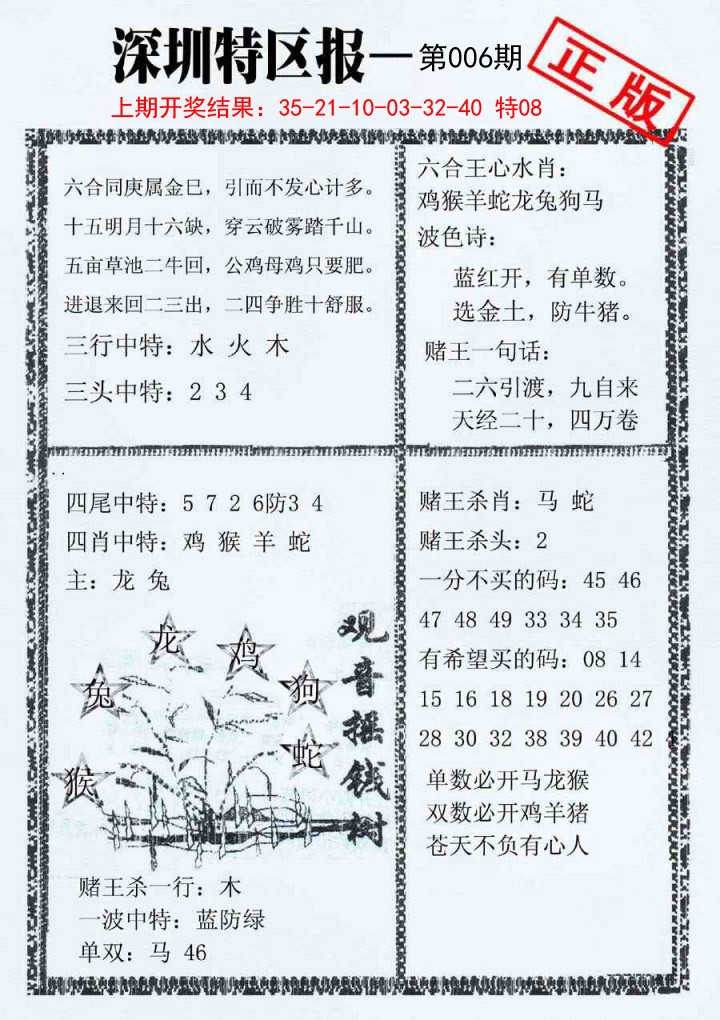 深圳特区报—第006期
正版
上期开奖结果：35-21-10-03-32-40 特08
六合同庚属金巳，引而不发心计多。
十五明月十六缺，穿云破雾踏千山。
五亩草池二牛回，公鸡母鸡只要肥。
进退来回二三出，二四争胜十舒服。
三行中特：水 火 木
三头中特：2 3 4
六合王心水肖：
鸡猴羊蛇龙兔狗马
波色诗：
蓝红开，有单数。
选金土，防牛猪。
赌王一句话：
二六引渡，九自来
天经二十，四万卷
四尾中特：5 7 2 6防3 4
四肖中特：鸡 猴 羊 蛇
主：龙 兔
龙
鸡
兔
狗
蛇
猴
观音摇钱树
赌王杀一行：木
一波中特：蓝防绿
单双：马 46
赌王杀肖：马 蛇
赌王杀头：2
一分不买的码：45 46
47 48 49 33 34 35
有希望买的码：08 14
15 16 18 19 20 26 27
28 30 32 38 39 40 42
单数必开马龙猴
双数必开鸡羊猪
苍天不负有心人